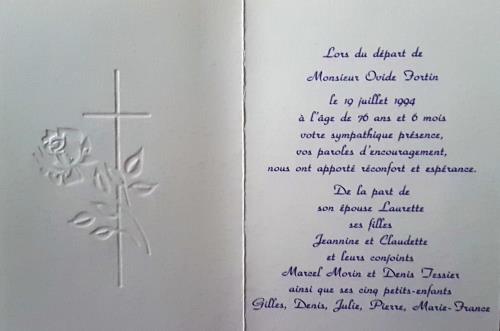 Lors du départ de
Monsieur Ovide Fortin
le 19 juillet 1994
à l'âge de 76 ans et 6 mois
votre sympathique présence,
vos paroles d'encouragement,
nous ont apporté réconfort et espérance.
De la part de
son épouse Laurette
ses filles
Jeannine et Claudette
et leurs conjoints
Marcel Morin et Denis Tessier
ainsi que ses cinq petits-enfants
Gilles, Denis, Julie, Pierre, Marie-France